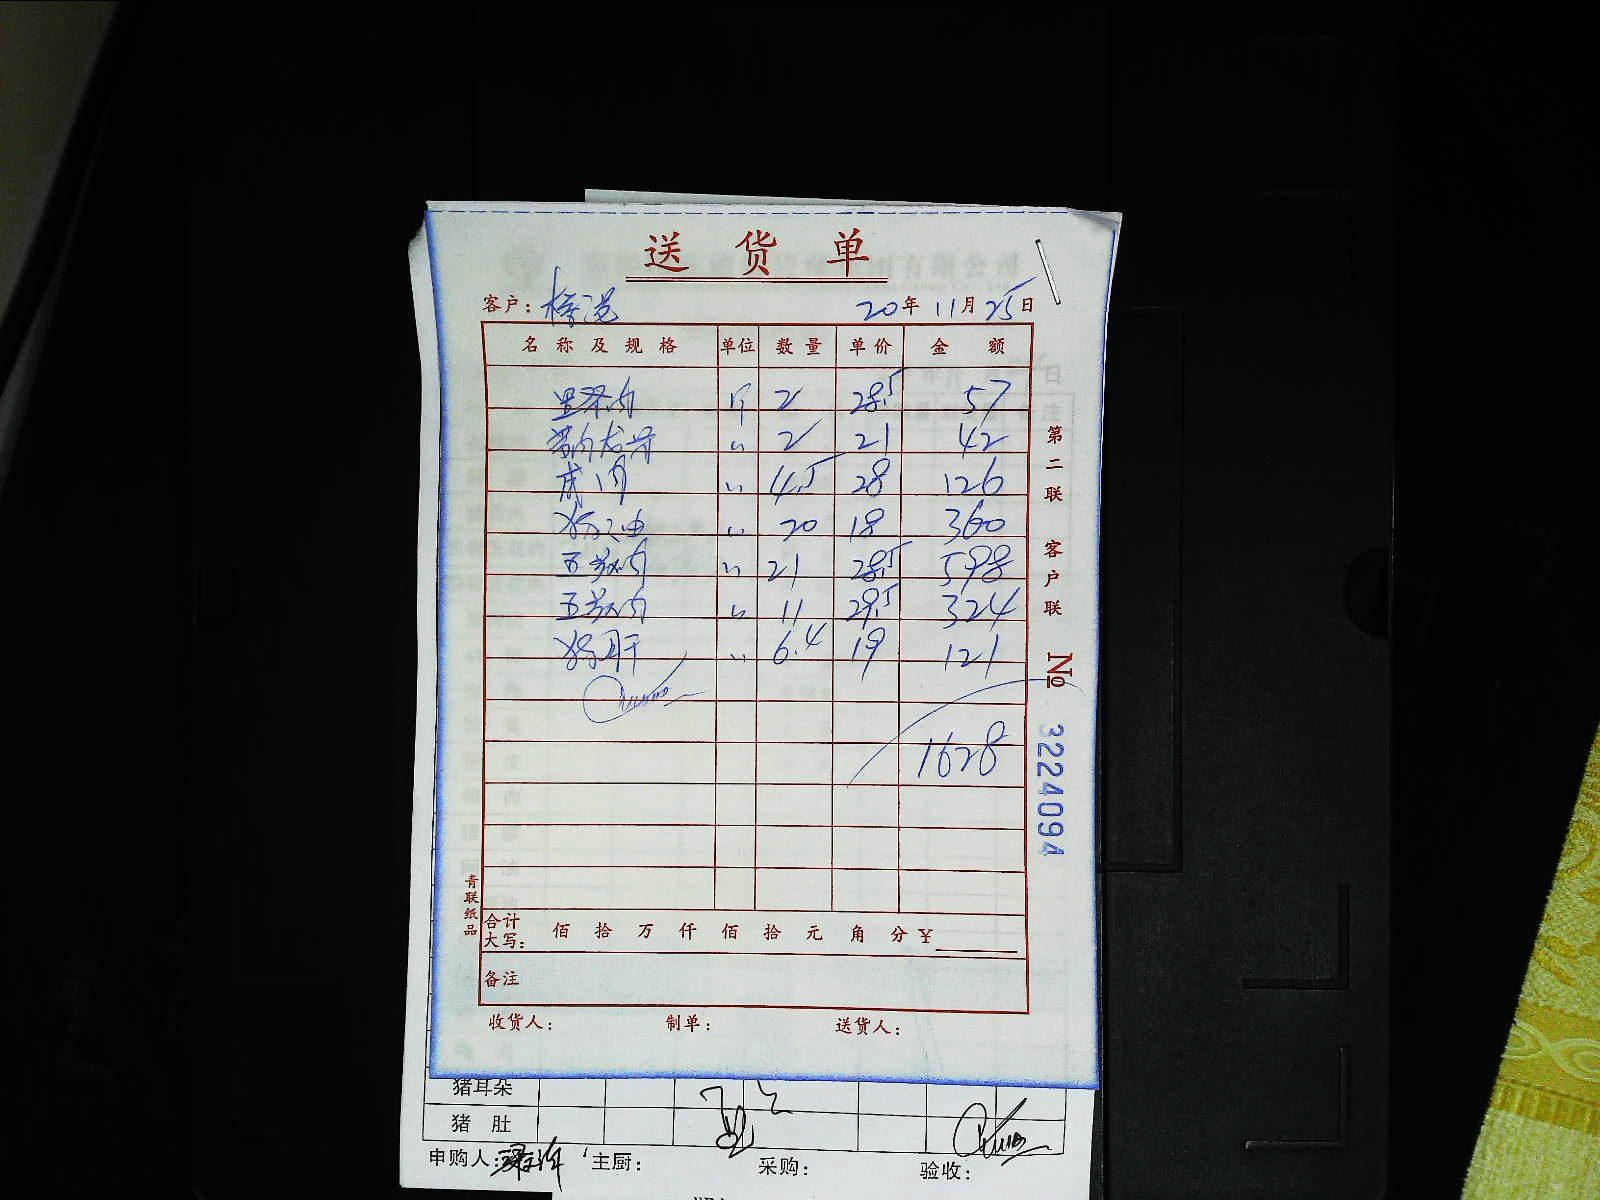 送货单
客户: 樟港 20年11月25日
名称及规格 单位 数量 单价 金额
里脊肉 斤 2 28.5 57
带肉龙骨 〃 2 21 42
瘦肉 〃 4.5 28 126
猪油 〃 20 18 360
五花肉 〃 21 28.5 598
五花肉 〃 11 29.5 324
猪肝 〃 6.4 19 121
1628
合计大写: 佰 拾 万 仟 佰 拾 元 角 分 ¥
备注
收货人: 制单: 送货人:
第二联 客户联
No 3224094
青联纸品
猪耳朵
猪肚
申购人: 主厨: 采购: 验收: